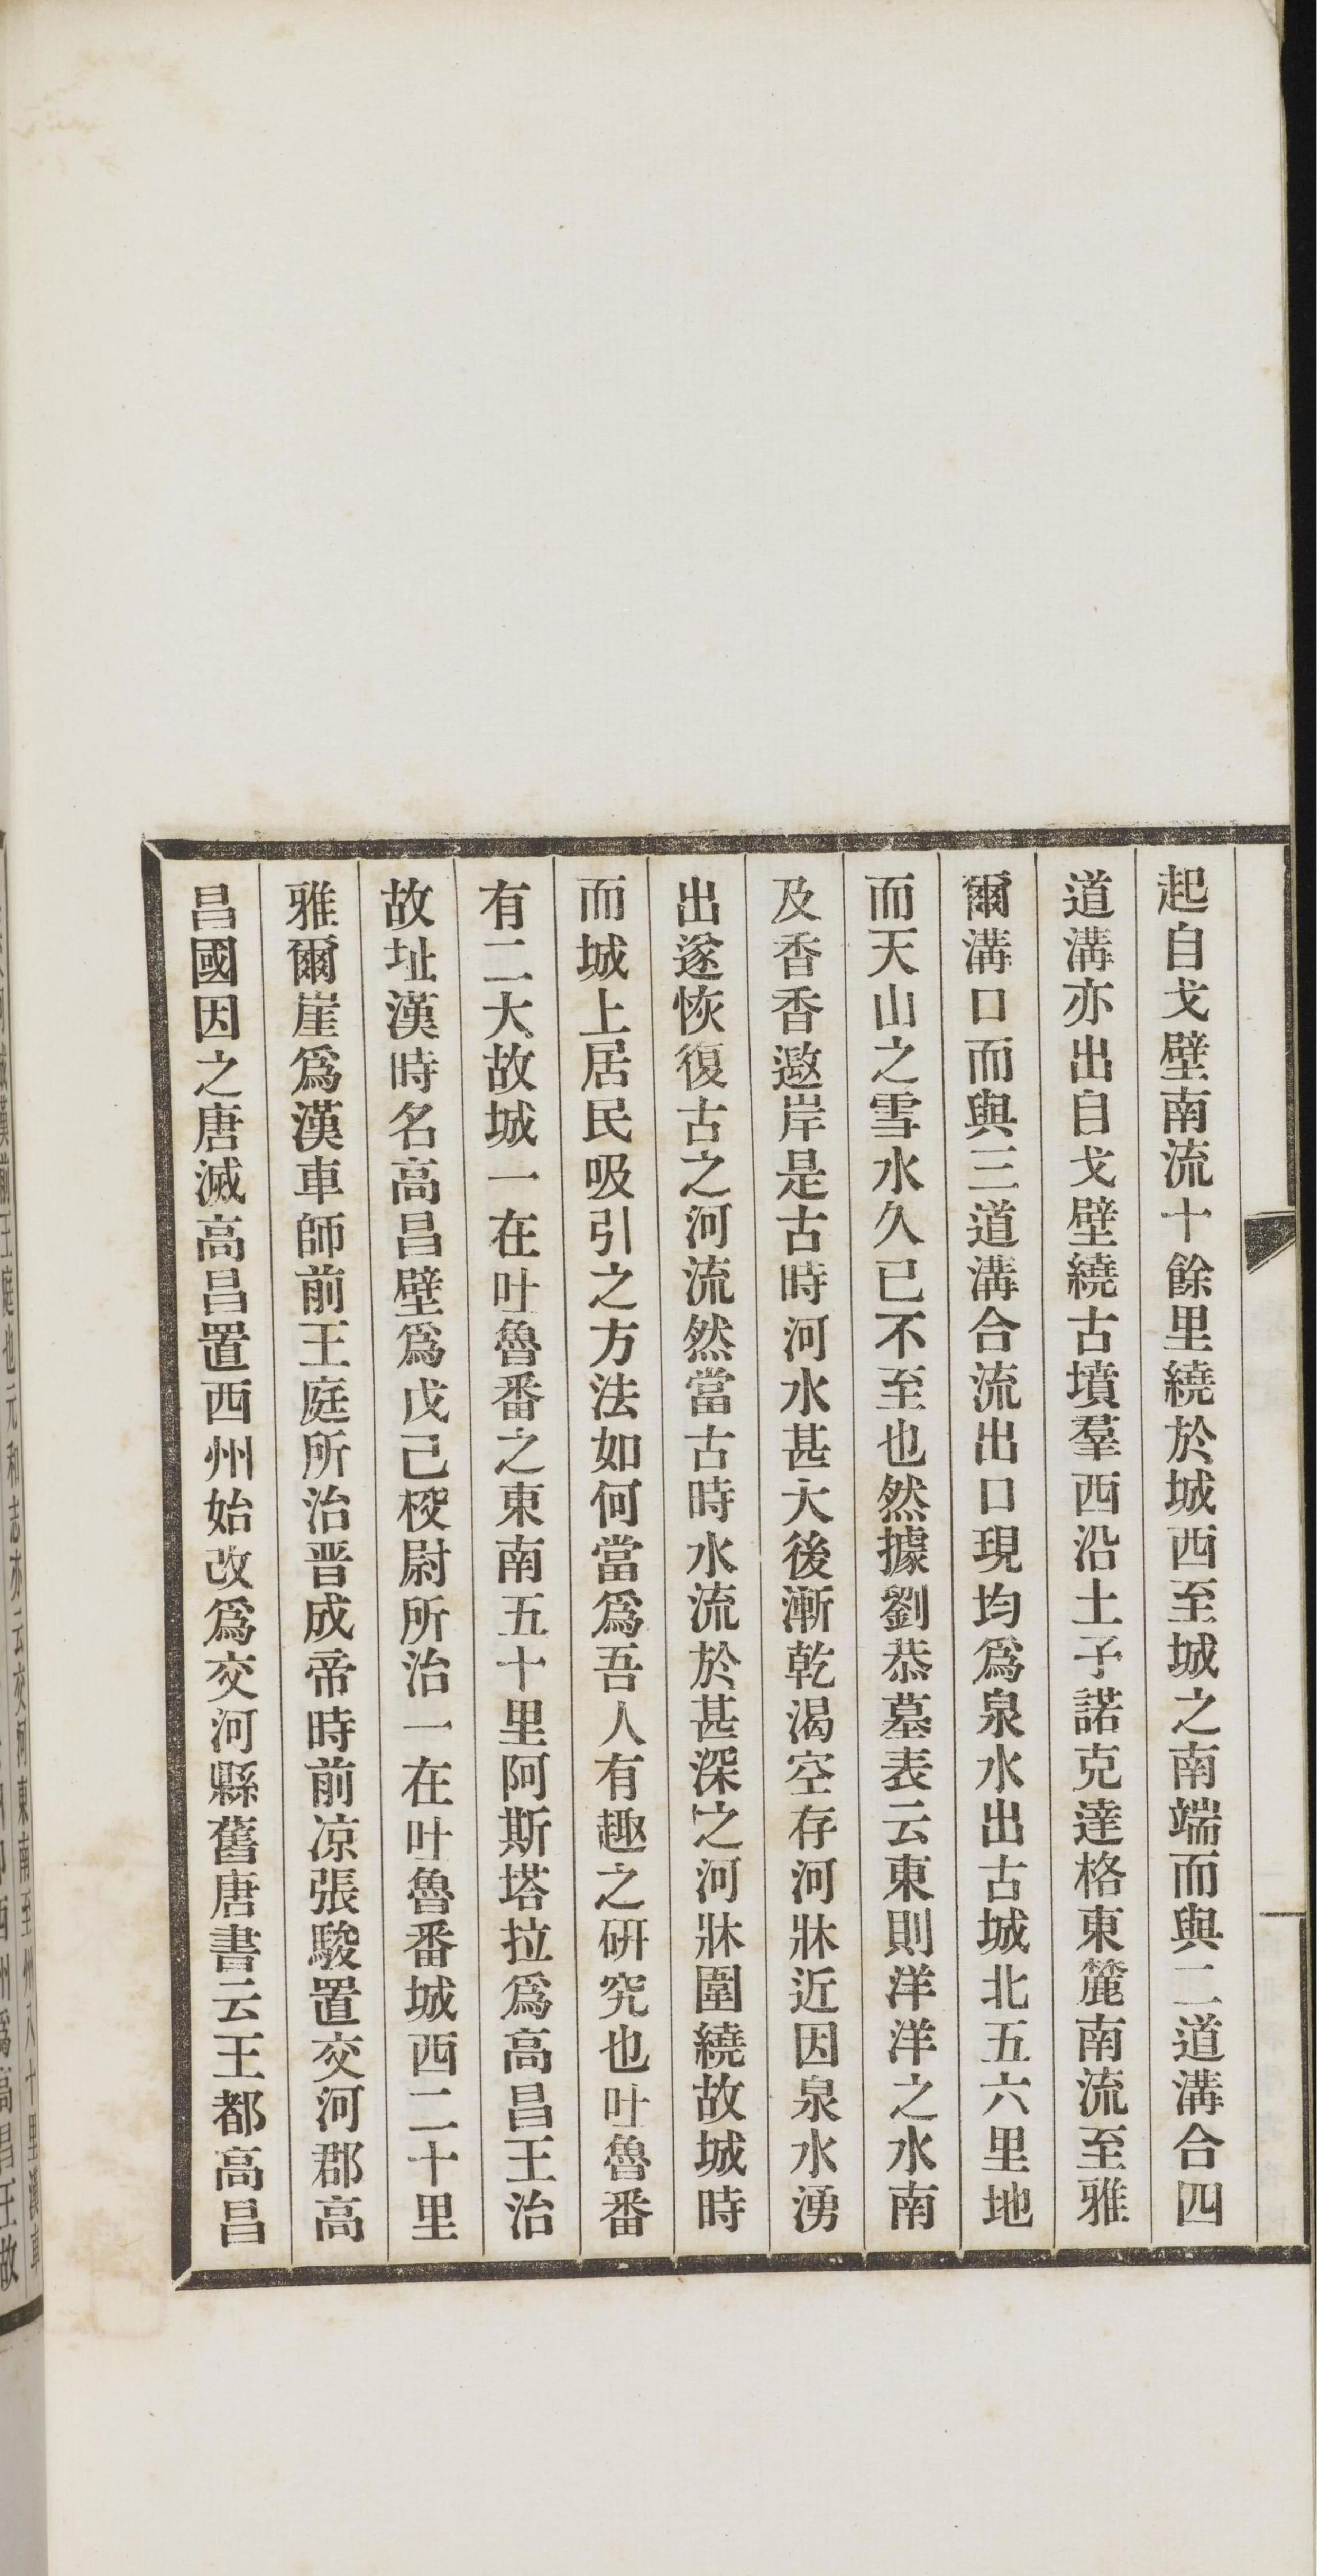 起自戈壁南流十餘里繞於城西至城之南端而與二道溝合四
道溝亦出自戈壁繞古墳羣西沿土子諾克達格東麓南流至雅
爾溝口而與三道溝合流出口現均爲泉水出古城北五六里地
而天山之雪水久已不至也然據劉恭墓表云東則洋洋之水南
及香香遨岸是古時河水甚大後漸乾渴空存河牀近因泉水湧
出遂恢復古之河流然當古時水流於甚深之河牀圍繞故城時
而城上居民吸引之方法如何當爲吾人有趣之研究也吐魯番
有二大故城一在吐魯番之東南五十里阿斯塔拉爲高昌王治
故址漢時名高昌壁爲戊己校尉所治一在吐魯番城西二十里
雅爾崖爲漢車師前王庭所治晋成帝時前凉張駿置交河郡高
昌國因之唐滅高昌置西州始改爲交河縣舊唐書云王都高昌